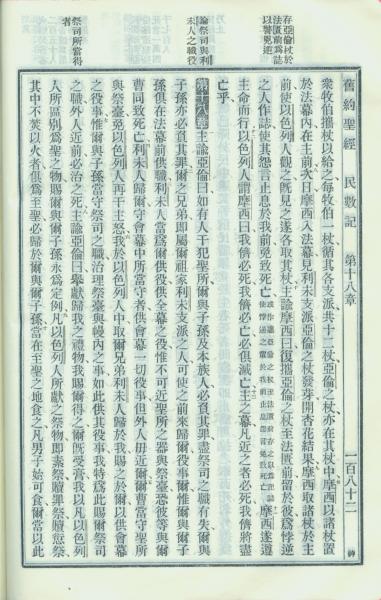 舊約聖經 民數記 第十八章 一百八十二
存亞倫杖於
法匱前爲誌
以警兇逆
衆牧伯攜杖以給之每牧伯一杖循其各支派共十二杖亞倫之杖亦在其杖中摩西以諸杖置
於法幕內在主前次日摩西入法幕見利未支派亞倫之杖發芽開杏花結果摩西取諸杖於主
前使以色列人觀之旣見之遂各取其杖主諭摩西曰復攜亞倫之杖至法匱前留於彼爲悖逆
之人作誌使其怨言止息於我前免致死亡摩西遂遵
主命而行以色列人謂摩西曰我儕必死我儕必亡必俱滅亡主之幕凡近之者必死我儕將盡
亡乎
論祭司與利
未人之職役
第十八章主諭亞倫曰如有人干犯聖所爾與子孫及本族人必負其罪盡祭司之職有失爾與
子孫亦必負其罪爾之兄弟卽屬爾祖家利未支派之人可使之前來歸爾役事爾惟爾與
孫俱在法幕前供職利未人當爲爾供役供全幕之役惟不可近聖所之器與祭臺恐彼等與爾
曹同致死亡利未人歸爾守會幕中所當守者供會幕一切役事但外人毋近爾爾曹當守聖所
與祭臺免以色列人再干主怒我於以色列人中取爾兄弟利未人歸於我賜之於爾以供會幕
之役事惟爾與子孫當守祭司之職治理祭臺與幔內之事如此供其役事我特爲此賜爾祭司
祭司所當得
者
之職外人近前必治之死主諭亞倫曰擧獻歸我之禮物我賜爾得之爾旣受膏我以凡以色列
人所區別爲聖之物賜爾與爾子孫永爲定例凡以色列人所獻之祭物卽素祭贖罪祭贖愆祭
其中不焚以火者俱爲至聖必歸於爾與爾子孫當在至聖之地食之凡男子始可食爾當以此
神